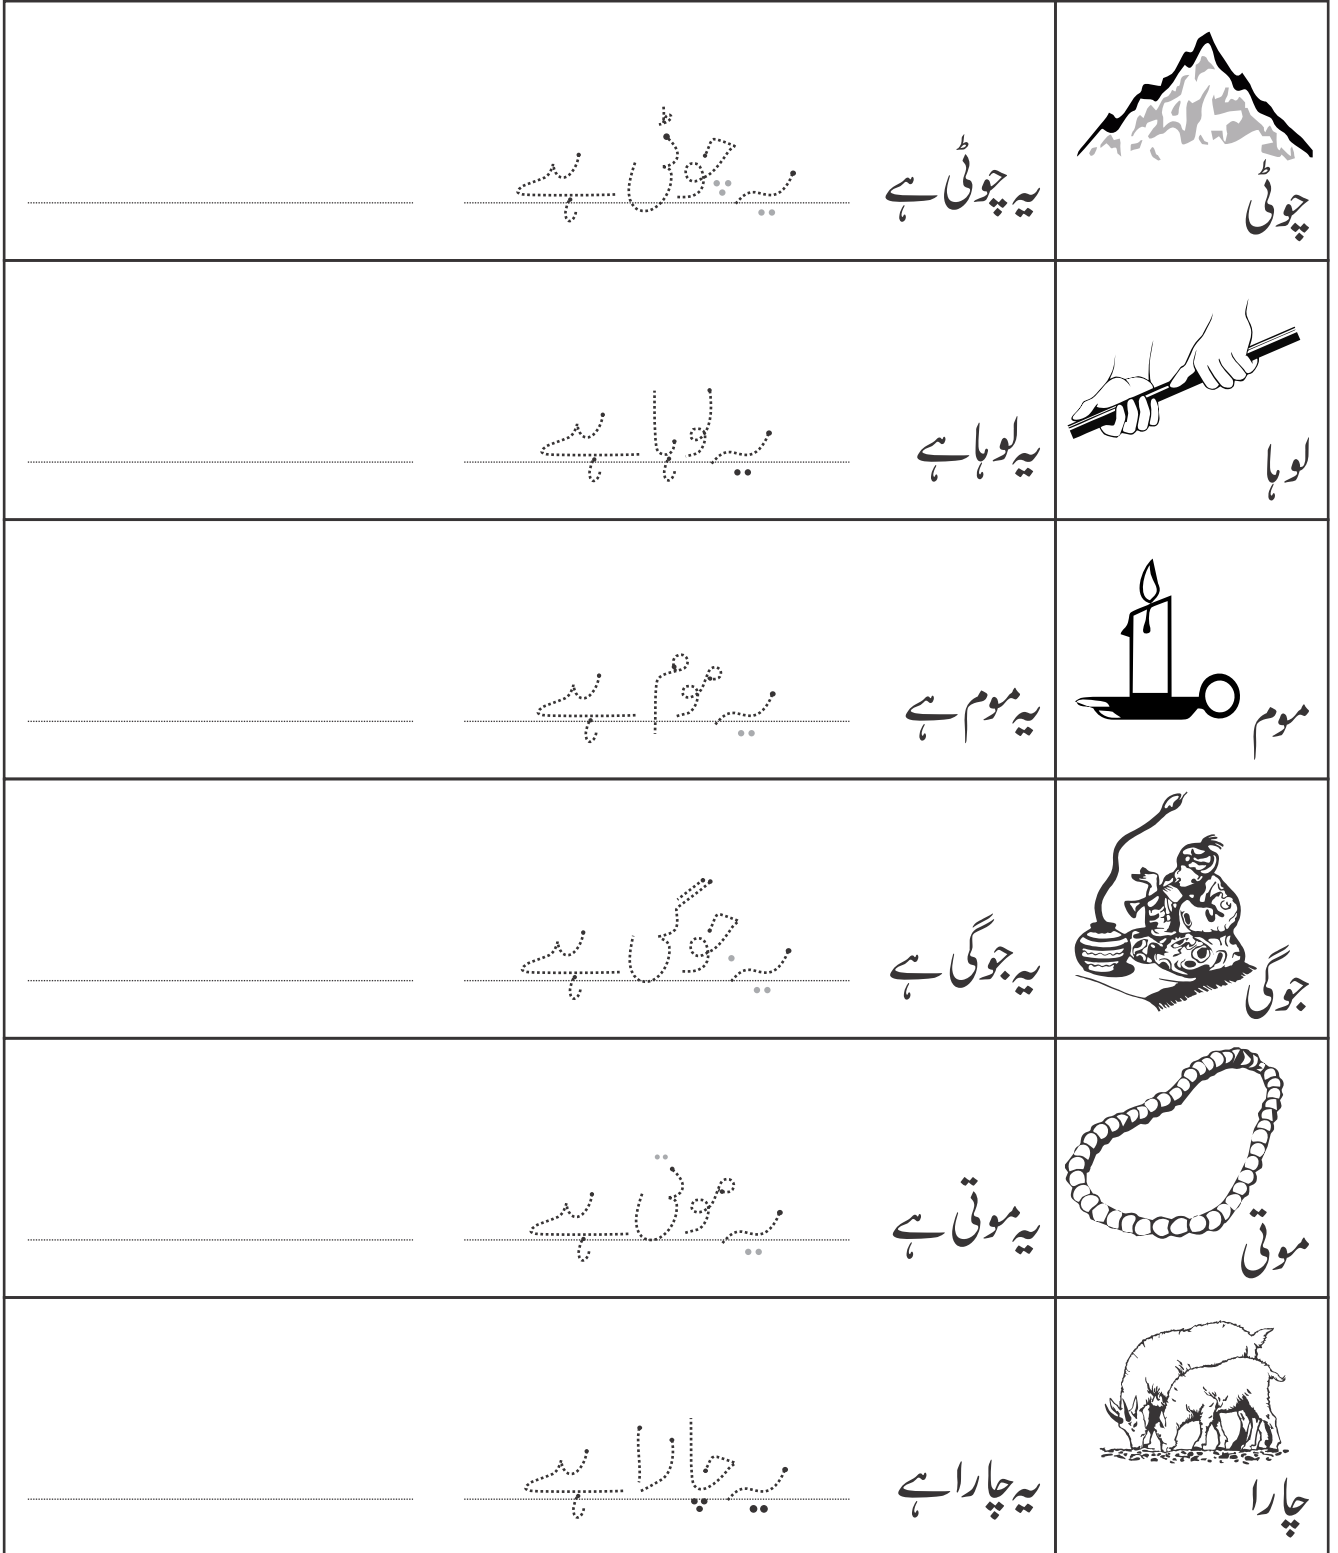 چوٹی
یہ چوٹی ہے یہ چوٹی ہے
لوہا
یہ لوہا ہے یہ لوہا ہے
موم
یہ موم ہے یہ موم ہے
جوگی
یہ جوگی ہے یہ جوگی ہے
موتی
یہ موتی ہے یہ موتی ہے
چارا
یہ چارا ہے یہ چارا ہے